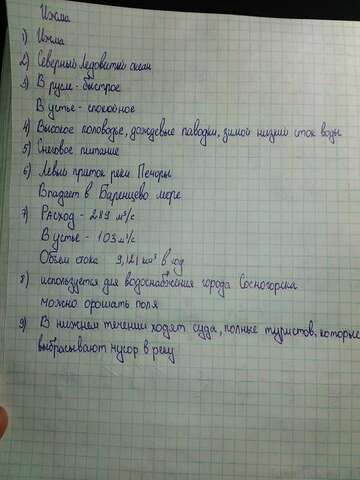 Ижма
1) Ижма
2) Северный Ледовитый океан
3) В русле - быстрое
В устье - спокойное
4) Высокое половодье, дождевые паводки, зимой низкий сток воды
5) Снеговое питание
6) Левый приток реки Печоры
Впадает в Баренцево море
7) Расход - 289 м³/с
В устье - 103 м³/с
Объём стока 9,121 км³ в год
8) используется для водоснабжения города Сосногорска
можно орошать поля
9) В нижнем течении ходят суда, полные туристов, которые
выбрасывают мусор в реку